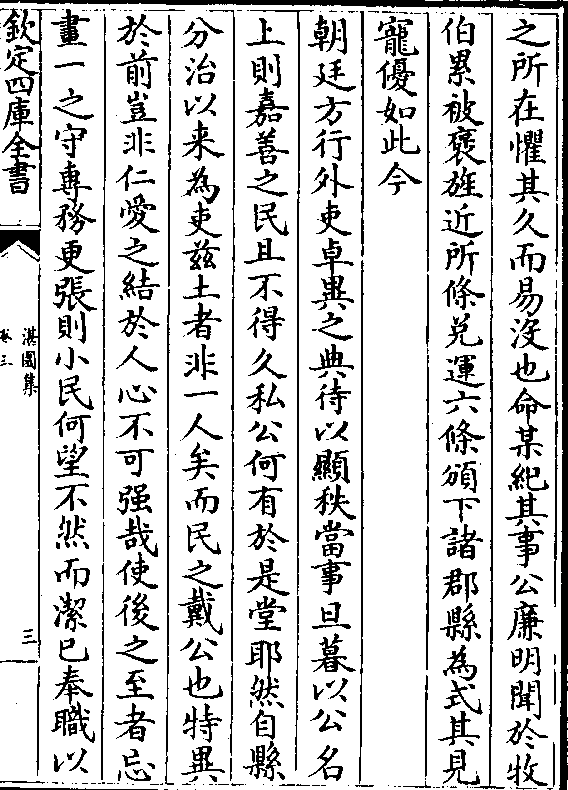 之所在懼其久而易沒也命某紀其事公廉明聞於牧
伯累被褒旌近所條兌運六條頒下諸郡縣為式其見
寵優如此今
朝廷方行外吏卓異之典待以顯秩當事旦暮以公名
上則嘉善之民且不得久私公何有於是堂耶然自縣
分治以来為吏兹土者非一人矣而民之戴公也特異
於前豈非仁愛之結於人心不可强哉使後之至者忘
畫一之守專務更張則小民何望不然而潔已奉職以
欽定四庫全書
湛園集
卷三
三